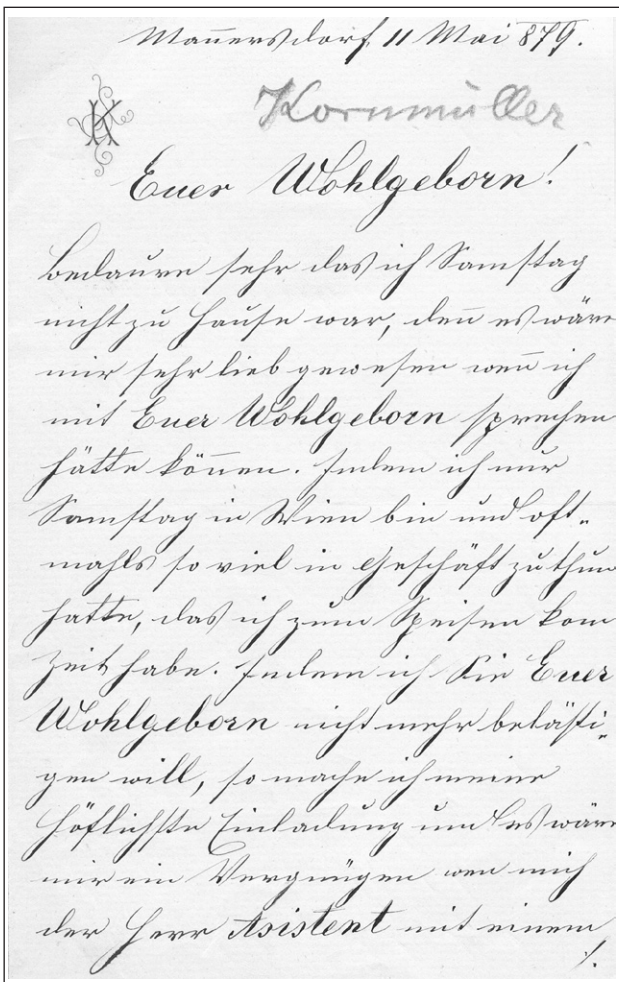 Mannersdorf, 11 Mai 879.
Kornmüller
Euer Wohlgeborn!
Bedaure sehr das ich Samstag
nicht zu Hause war, den̅ es wäre
mir sehr lieb gewesen wen̅ ich
mit Euer Wohlgeborn sprechen
hätte können. Indem ich nur
Samstag in Wien bin und oft-
mahls so viel in Geschäft zu thun
hatte, das ich zum Speisen kom
Zeit habe. Indem ich Sie Euer
Wohlgeborn nicht mehr belästi-
gen will, so mache ich meine
höflichste Einladung und es wäre
mir ein Vergnügen wen mich
der Herr Asistent mit einem
./.